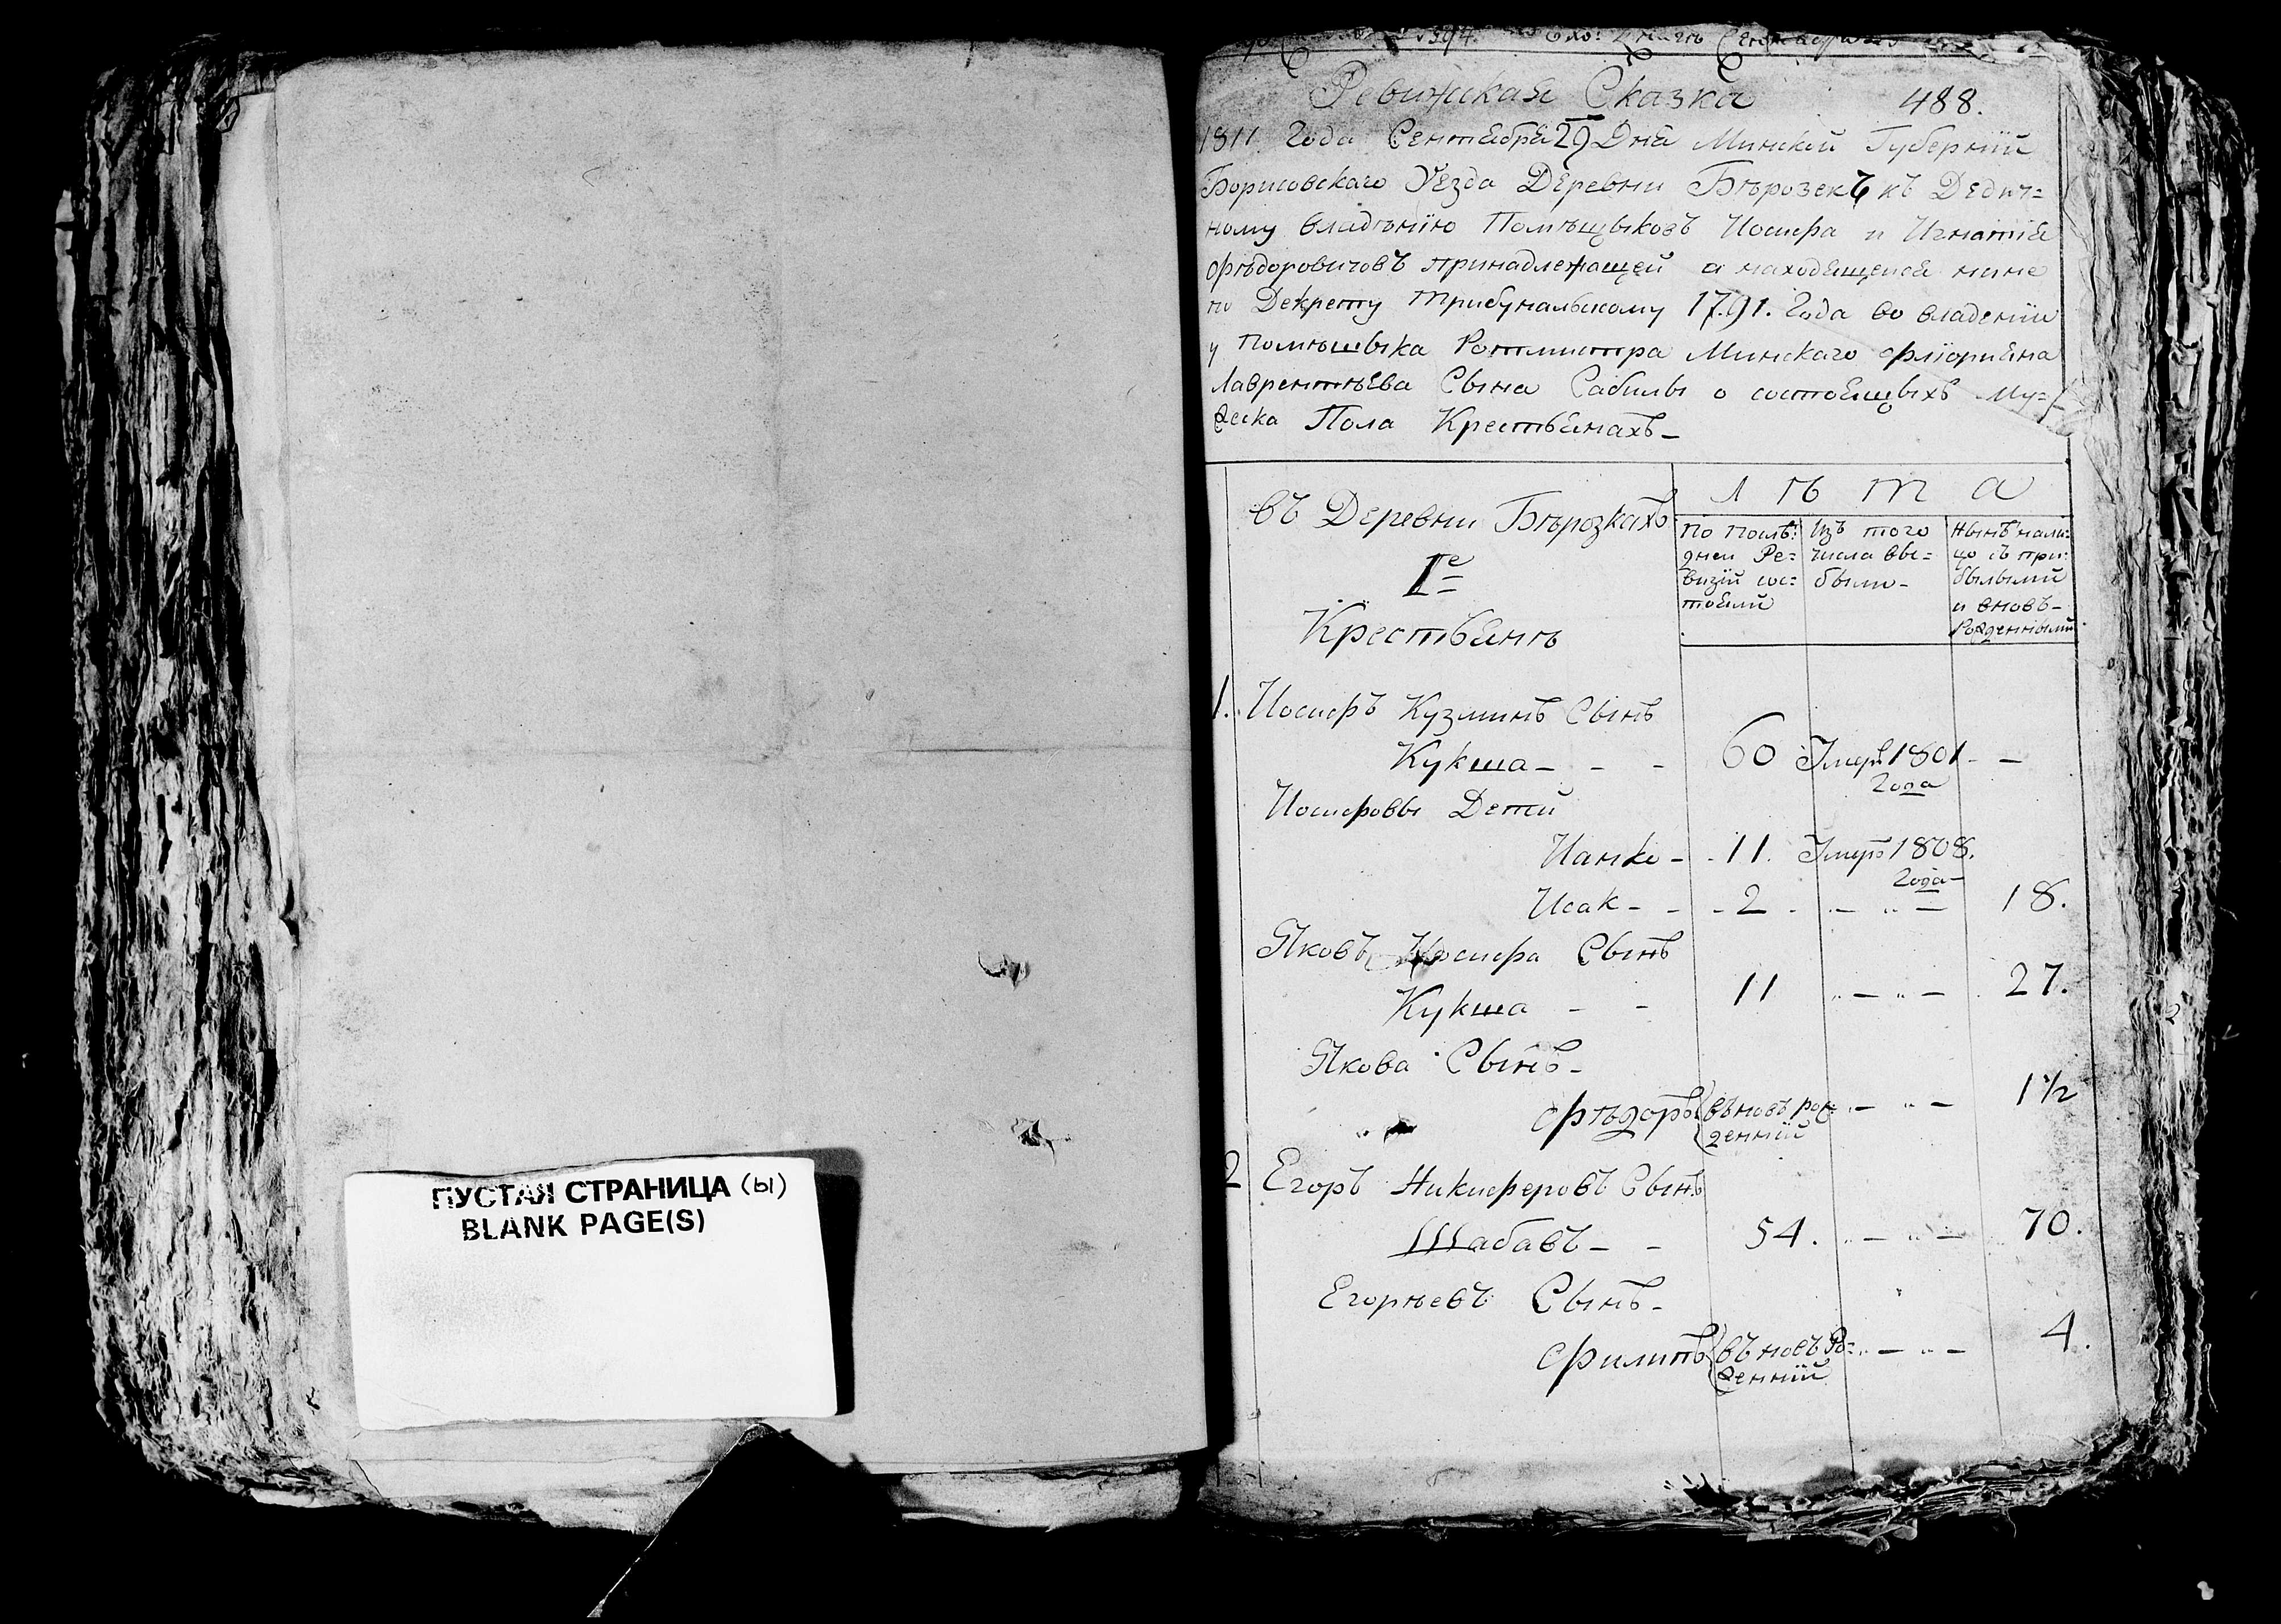 ПУСТАЯ СТРАНИЦА (ы)
BLANK PAGE(S)
1594.
Ревизская Сказка 488.
1811 Года Сентября 29 Дня Минской Губернїй
Борисовскаго Уѣзда Деревни Бѣрозекъ къ Дедич=
ному владѣнїю Помѣщыковъ Иосифа и Игнатїя
Фѣдоровичовъ принадлежащей а находящейся нине
по Декрету Трибунальскому 1791. Года во владенїи
у Помѣшыка Ротмистра Минскаго Флїорияна
Лаврентъева Сына Сабилы о состоящыхъ Му=
жеска Пола Крестьянахъ-
въ Деревни Бѣрозкахъ
I-е
Крестьянъ
Л ѣ т а
По послѣ=
дней Ре=
визїй сос=
тояли
Изъ того
числа вы=
были-
Нынѣ нали=
цо съ при=
былыми
и вновь-
Рожденными
1. Иосифъ Кузминъ Сынъ
Кукша - - - 60 Умеръ 1801 - -
Года
Иосифовы Дети
Ианко - 11. Умеръ 1808.
Года-
Исак - - - 2 - - „ - 18.
Яковъ Иосифа Сынъ
Кукша - - 11 „ - „ - 27.
Якова Сынъ-
Фѣдоръ (въновъ рож= - „ - 1 1/2
денний
2 Егоръ Никиферовъ Сынъ
Шабавъ - - 54. - „ - 70.
Егорѣевъ Сынъ-
Филипъ (въновъ Ро= „ - „ - 4.
жений